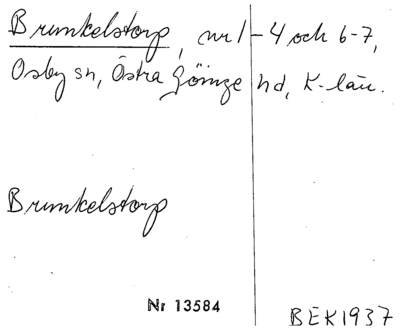 Brunkelstorp, nr 1-4 och 6-7,
Osby sn, Östra Göinge hd, K-län.
Brunkelstorp
Nr 13584
BEK 1937